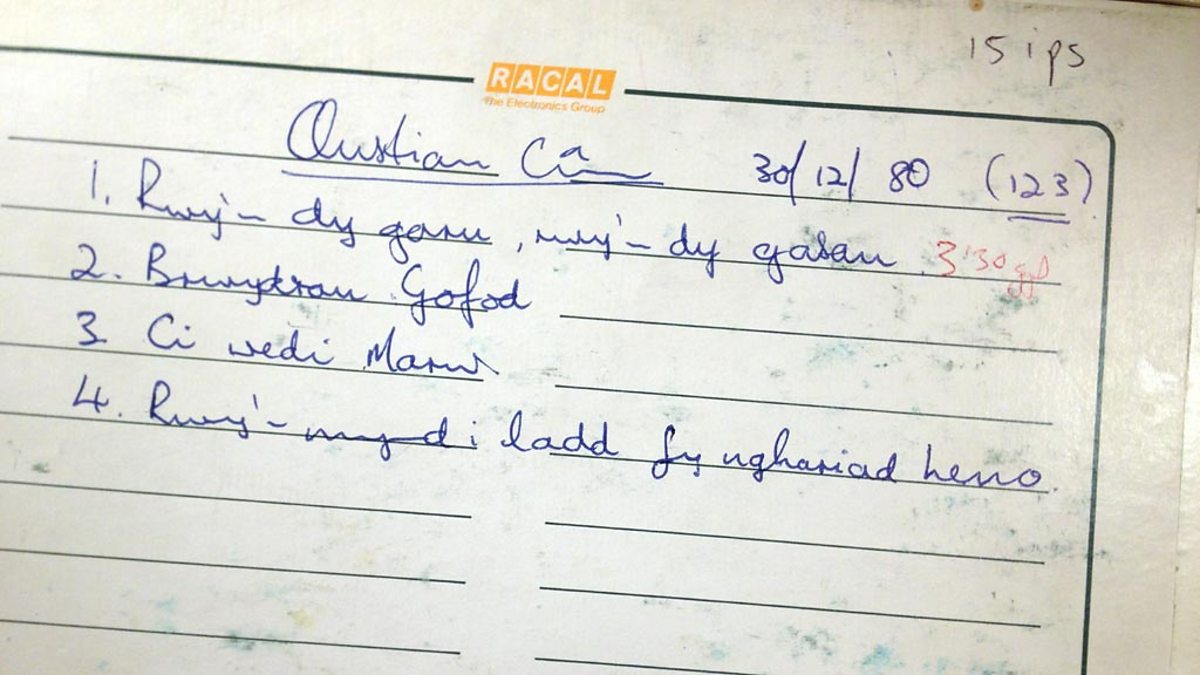 15 ips
RACAL
The Electronics Group
Clustian Cân 30/12/80 (123)
1. Rwy'n dy garu, rwy'n dy gasau 3'30
2. Brwydrau Gofod
3. Ci wedi Marw
4. Rwy'n mynd i ladd fy nghariad heno.